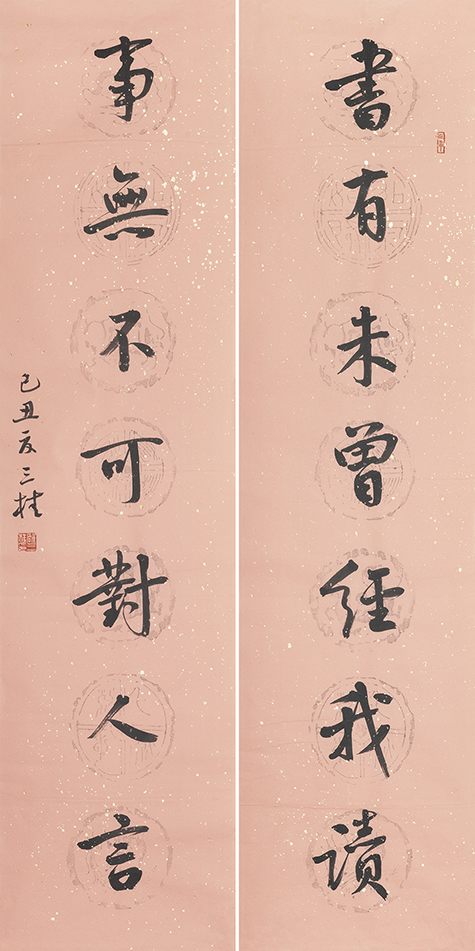 書有未曾經我讀
事無不可對人言
己丑夏三